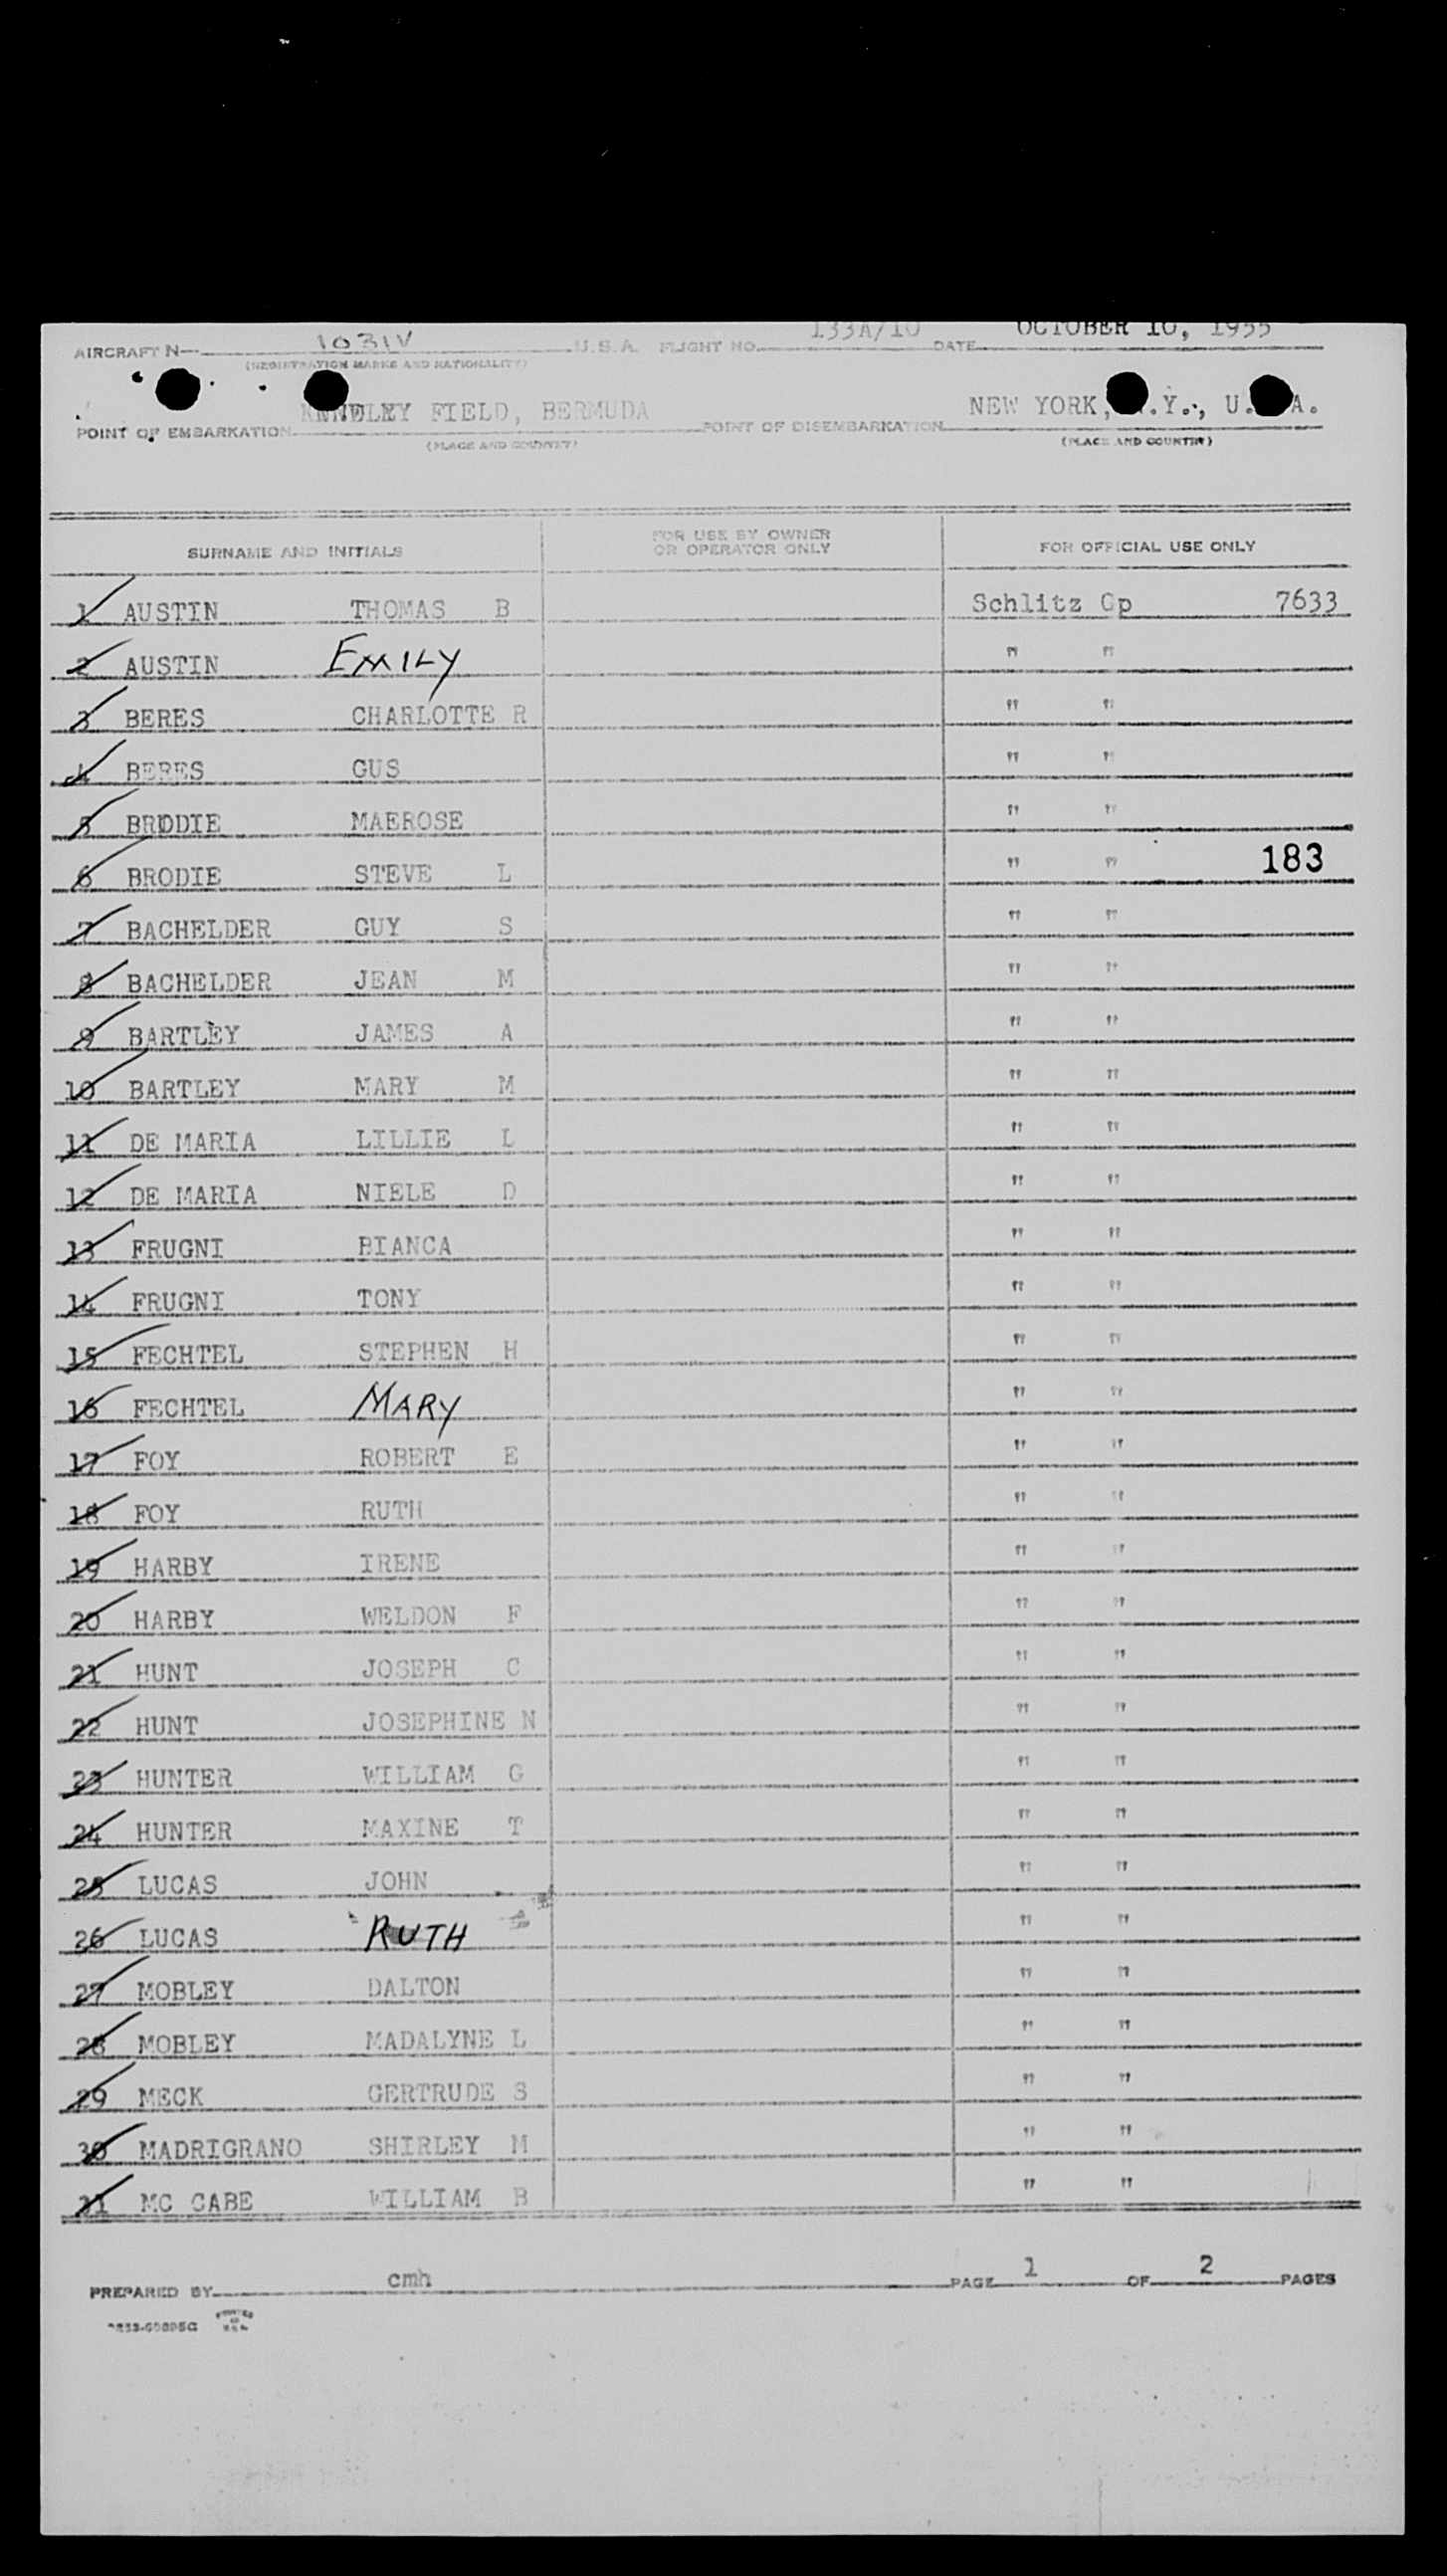 133A/10 OCTOBER 10, 1955
AIRCRAFT N— 1031V U.S.A. FLIGHT NO. DATE
(REGISTRATION MARKS AND NATIONALITY)
KINDLEY FIELD, BERMUDA NEW YORK, N.Y., U.S.A.
POINT OF EMBARKATION POINT OF DISEMBARKATION
(PLACE AND COUNTRY) (PLACE AND COUNTRY)
SURNAME AND INITIALS FOR USE BY OWNER OR OPERATOR ONLY FOR OFFICIAL USE ONLY
1 AUSTIN THOMAS B Schlitz Gp 7633
2 AUSTIN EMILY " "
3 BERES CHARLOTTE R " "
4 BERES GUS " "
5 BRODIE MAEROSE " "
6 BRODIE STEVE L " " 183
7 BACHELDER GUY S " "
8 BACHELDER JEAN M " "
9 BARTLEY JAMES A " "
10 BARTLEY MARY M " "
11 DE MARIA LILLIE L " "
12 DE MARIA NIELE D " "
13 FRUGNI BIANCA " "
14 FRUGNI TONY " "
15 FECHTEL STEPHEN H " "
16 FECHTEL MARY " "
17 FOY ROBERT E " "
18 FOY RUTH " "
19 HARBY IRENE " "
20 HARBY WELDON F " "
21 HUNT JOSEPH C " "
22 HUNT JOSEPHINE N " "
23 HUNTER WILLIAM G " "
24 HUNTER MAXINE T " "
25 LUCAS JOHN " "
26 LUCAS RUTH " "
27 MOBLEY DALTON " "
28 MOBLEY MADALYNE L " "
29 MECK GERTRUDE S " "
30 MADRIGRANO SHIRLEY M " "
31 MC CABE WILLIAM B " "
PREPARED BY cmh PAGE 1 OF 2 PAGES